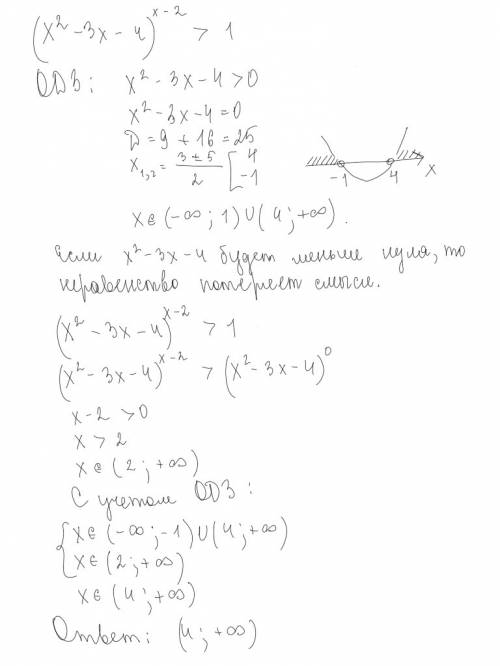 (x² - 3x - 4)^(x-2) > 1
ОДЗ: x² - 3x - 4 > 0
x² - 3x - 4 = 0
D = 9 + 16 = 25
x₁,₂ = (3 ± 5)/2 [4 -1
-1 4 x
x ∈ (-∞; 1) ∪ (4; +∞).
Если x² - 3x - 4 будет меньше нуля, то
неравенство потеряет смысл.
(x² - 3x - 4)^(x-2) > 1
(x² - 3x - 4)^(x-2) > (x² - 3x - 4)^0
x - 2 > 0
x > 2
x ∈ (2; +∞)
С учетом ОДЗ:
{ x ∈ (-∞; -1) ∪ (4; +∞)
x ∈ (2; +∞)
x ∈ (4; +∞)
Ответ: (4; +∞)